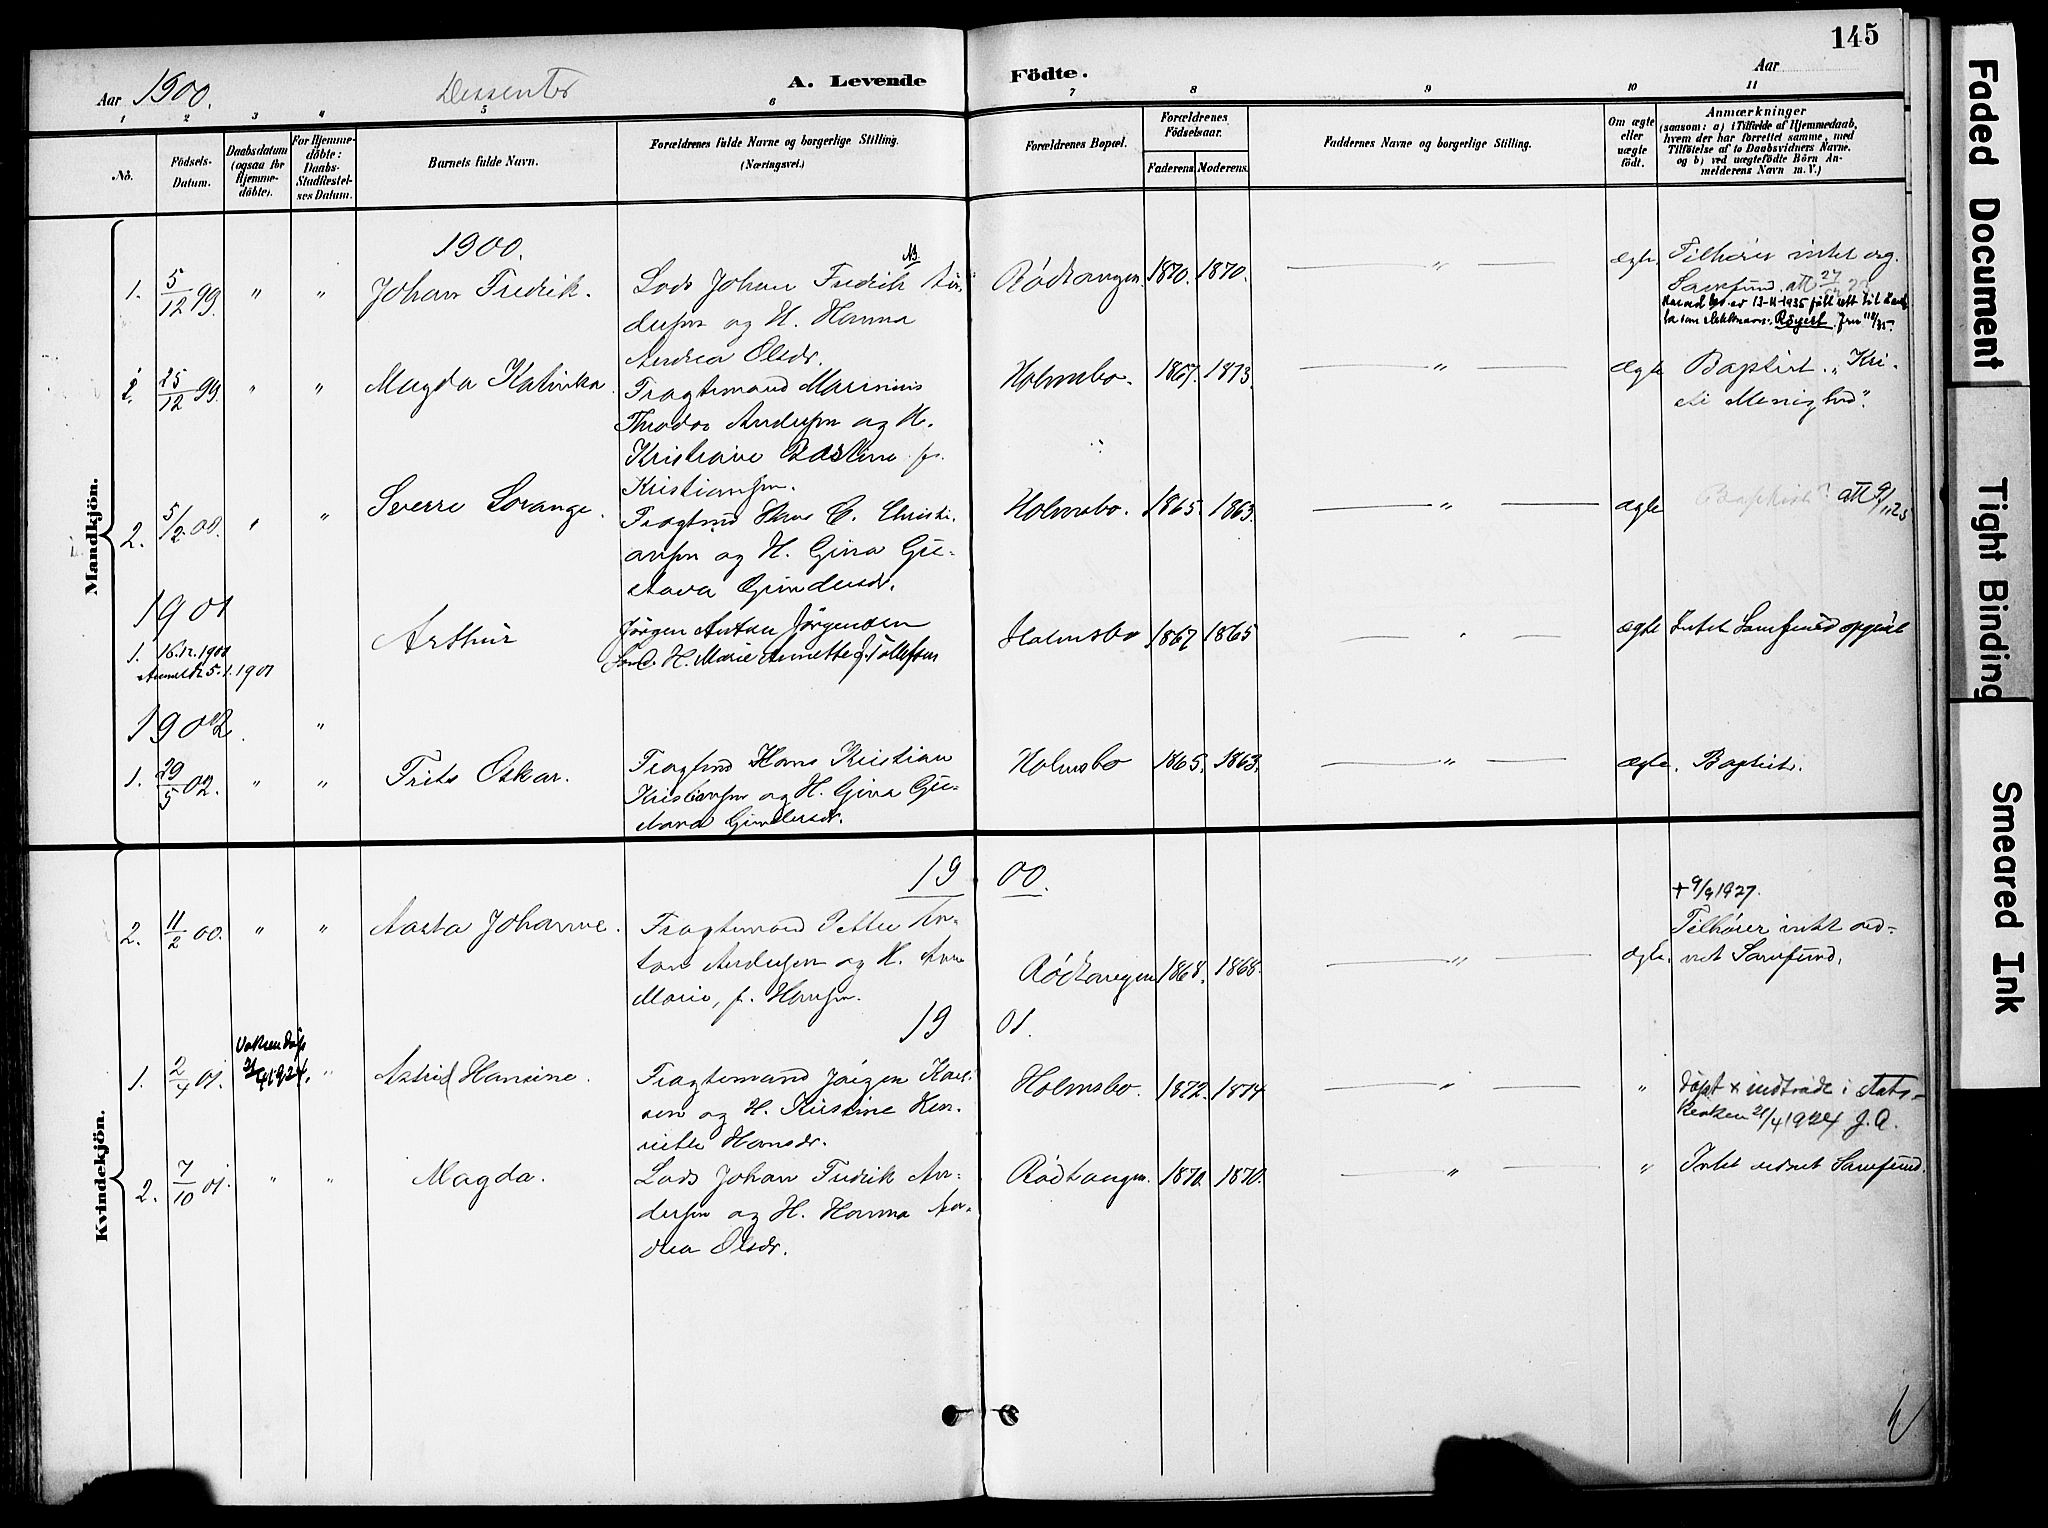 145
Aar 1900.
Dissenter
A. Levende Födte.
Aar
1 2 3 4 5 6 7 8 9 10 11
No.
Födsels-Datum.
Daabsdatum (ogsaa for Hjemmedöbte).
For Hjemmedöbte: Daabs-Stadfæstelses Datum.
Barnets fulde Navn.
Forældrenes fulde Navne og borgerlige Stilling. (Næringsvei.)
Forældrenes Bopæl.
Forældrenes Födselsaar.
Faderens. Moderens.
Faddernes Navne og borgerlige Stilling.
Om ægte eller uægte født.
Anmærkninger
(saasom: a) i Tilfælde af Hjemmedaab,
hvem der har forrettet samme, med
Tilföielse af to Daabsvidners Navne.
og b) ved uægtefödte Börn An-
melderens Navn m. V.)
Mandkjön.
1900.
1. 5/12 99. " " Johan Fredrik. Lods Johan Fredrik An-
dersen og H. Hanna
Andrea Olsdr.
Rødtangen 1870. 1870. " ægte. Tilhører intet org.
Samfund. att 27
13-11-1935 fått rett til
Røyert
1. 25/12 99. " " Magda Kalinka Fragtemand Marinius
Theodor Andersen og H.
Kristiane Bastine f.
Kristiansen.
Holmsbo. 1867. 1873. " Ægte Baptist. "Kri-
sti Menighed".
2. 5/2 00. " " Sverre Lorange. Fragtmd Hans C. Christi-
ansen og H. Gina Gu-
stava Gundersdr.
Holmsbo. 1865. 1863. " ægte Baptist? att 9/11 25
1901
1. 16.12.1900 Anmeldt 5.1.1901 Arthur Jörgen Anton Jörgensen
H. Marie Annette f. Tollefsen
Holmsbo 1867 1865 " ægte Intet Samfund opgivet
1902. "
1. 29/5 02. " " Frits Oskar. Fragtmd Hans Kristian
Kristiansen og H. Gina Gu-
stava Gundersdr.
Holmsbo 1865. 1863. " ægte. Baptist.
Kvindekjön.
1900.
2. 11/2 00. " " Aasta Johanne. Fragtemand Petter An-
ton Andersen og H. Anne
Marie, f. Hansen.
Rødtangen 1868. 1868. " ægte. + 9/9 1927.
Tilhører intet ord-
net Samfund.
1901.
1. 2/4 01. Voksendåp 21/4 1924. " Astrid Hansine. Fragtemand Jörgen Karl-
sen og H. Kristine Hen-
riette Hansdr.
Holmsbo. 1872. 1874 " " Döpt + indtråde i stats-
kirken 21/4 1924 J.A.
2. 7/10 01. " " Magda. Lods Johan Fredrik An-
dersen og H. Hanna An-
drea Olsdr.
Rødtangen. 1870. 1870. " " Intet ordnet Samfund.
Faded Document
Tight Binding
Smeared Ink